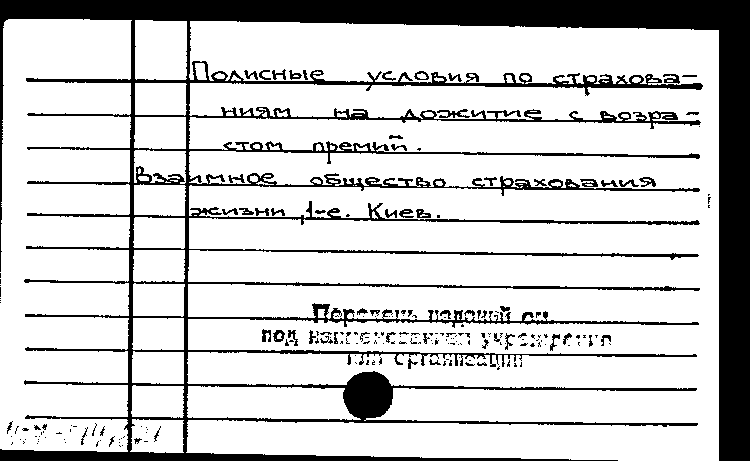 Полисные условия по страхова-
ниям на дожитие с возра-
стом премий.
Взаимное общество страхования
жизни, 1-е. Киев.
Перечень изданий см.
под наименованием учреждения
или организации